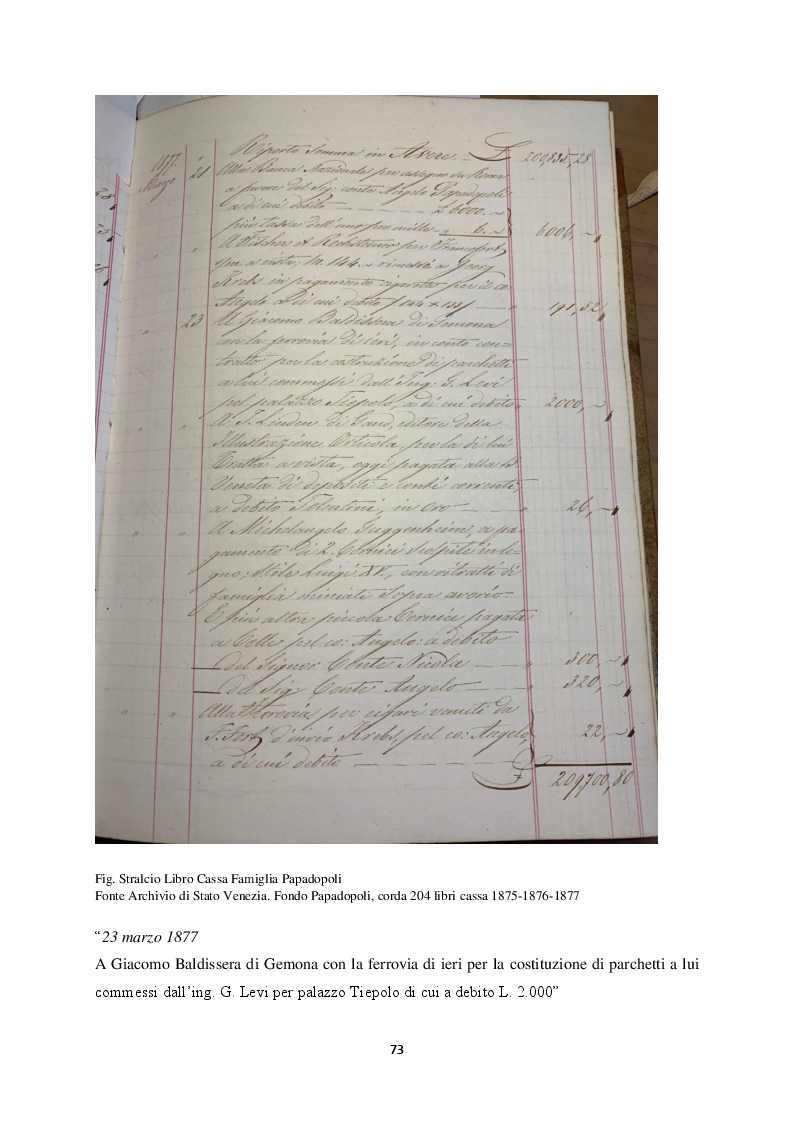 Riporto Somma in Avere £ 200,835,28
1877. " 21 Alla Banca Nazionale per assegno su Roma
Marzo a favore del Sig. conte Angelo Papadopoli
a di cui debito £ 6000. ~
più tassa dell'uno per mille " 6. ~ 6006, ~
" " A Fischer et Rechsteiner per
a vista, 144 rimessi a Georg
Krebs in pagamento per il co:
Angelo a di cui debito " 191,52
" 23 A Giacomo Baldissera di Gemona
con la ferrovia di ieri, in conto con-
tratto per la costruzione di parchetti
a lui commessi dall'Ing: G. Levi
pel palazzo Tiepolo, a di cui debito " 2000, ~
" " A J. Linden di Gand, editore della
Illustrazione Orticola, per la di lui
Tratta a vista, oggi pagata alla
Veneta di depositi e conti correnti,
a debito Tolentini, in Oro " 26, ~
" " A Michelangelo Guggenheim, a pa-
gamento di 2. Cornici scolpite in le-
gno, Stile Luigi XV., con ritratti di
famiglia miniati sopra avorio.
E più altra piccola Cornice pagata
a Colle pel co: Angelo: a debito
del Signor Conte Nicola " 300, ~
del Sig. Conte Angelo " 320, ~
" " Alla Ferrovia per cigari venuti da
d'invio Krebs, pel co: Angelo,
a di cui debito 22, ~
209700,80
Fig. Stralcio Libro Cassa Famiglia Papadopoli
Fonte Archivio di Stato Venezia. Fondo Papadopoli, corda 204 libri cassa 1875-1876-1877
“23 marzo 1877
A Giacomo Baldissera di Gemona con la ferrovia di ieri per la costituzione di parchetti a lui
commessi dall’ing. G. Levi per palazzo Tiepolo di cui a debito L. 2.000”
73